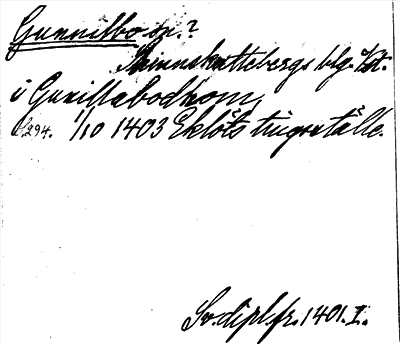 Gunnilbo sn.?
Skinnskattebergs blg. Vstm.
i Gunillabodhom,
s. 294. 1/10 1403 Eklöts tingsställe.
Sv. dipl. fr. 1401. I.